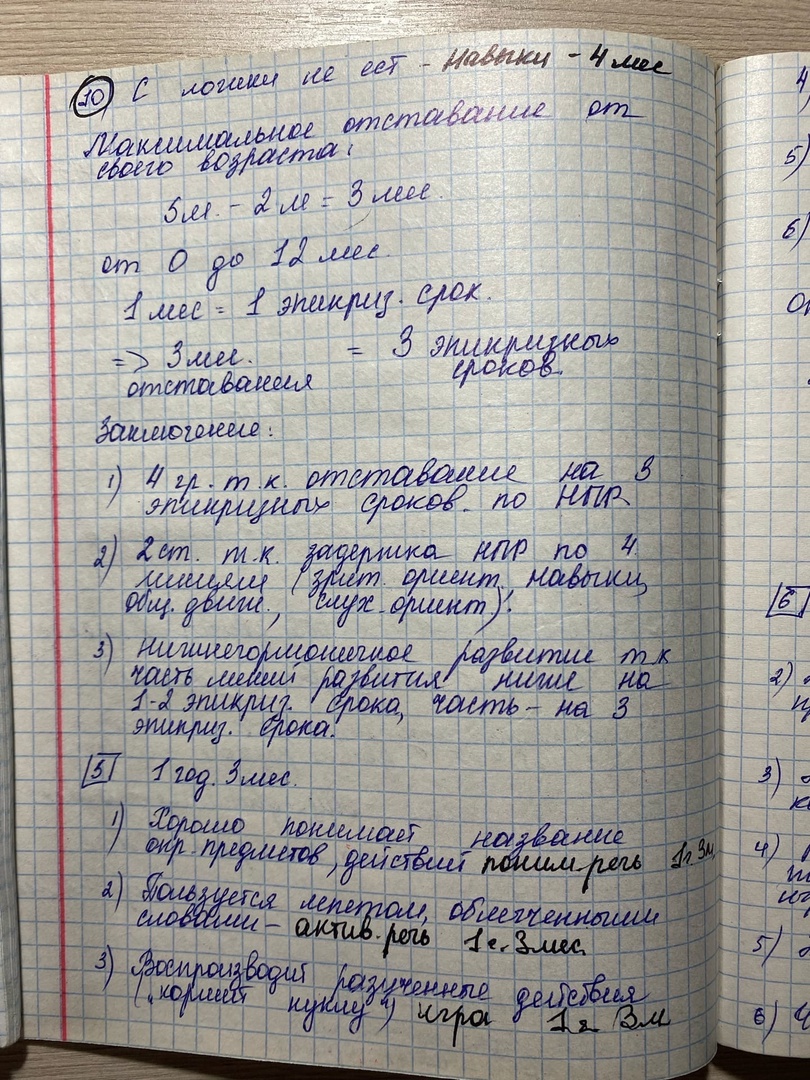 10) С ложки не ест - навыки - 4 мес
Максимальное отставание от
своего возраста:
5м. - 2м = 3 мес.
от 0 до 12 мес.
1 мес = 1 эпикриз. срок.
=> 3 мес. = 3 эпикризных
отставания сроков.
Заключение:
1) 4 гр. т.к. отставание на 3
эпикризных сроков. по НПР
2) 2 ст. т.к. задержка НПР по 4
линиям (зрит. ориент, навыки,
общ. движ., слух. ориент).
3) Нижнегормоничное развитие т.к
часть линий развития ниже на
1-2 эпикриз. срока, часть - на 3
эпикриз. срока.
5 1 год. 3 мес.
1) Хорошо понимает название
окр. предметов, действий поним. речь 1г. 3м.
2) Пользуется лепетом, облегченными
словами - актив. речь 1г. 3мес
3) Воспроизводит разученные действия
("кормит куклу") игра 1г 3м
4
5)
6)
6
2)
3)
4)
5)
6)